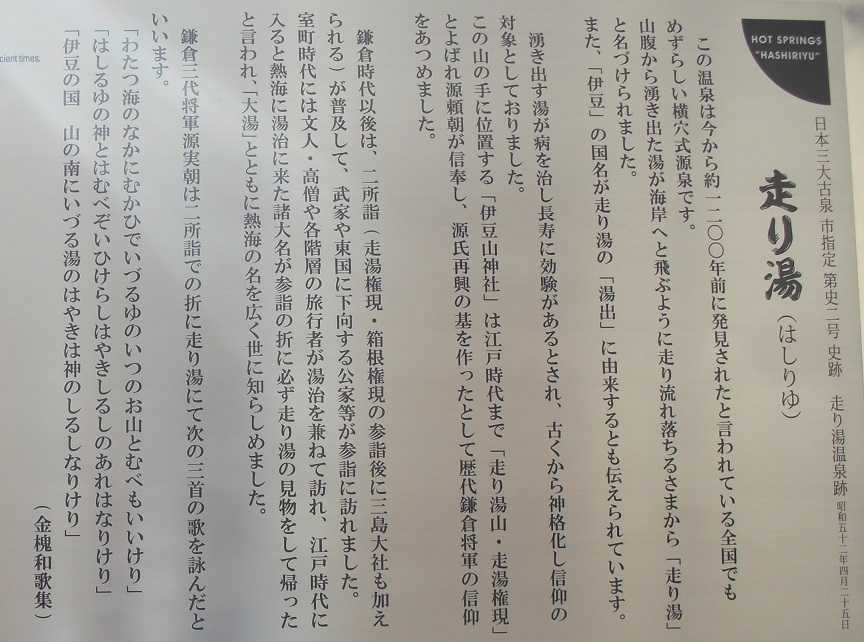 HOT SPRINGS
"HASHIRIYU"
日本三大古泉 市指定 第史二号 史跡　走り湯温泉跡 昭和五十二年四月二十五日
走り湯（はしりゆ）
この温泉は今から約一二〇〇年前に発見されたと言われている全国でも
めずらしい横穴式源泉です。
山腹から湧き出た湯が海岸へと飛ぶように走り流れ落ちるさまから「走り湯」
と名づけられました。
また、「伊豆」の国名が走り湯の「湯出」に由来するとも伝えられています。
湧き出す湯が病を治し長寿に効験があるとされ、古くから神格化し信仰の
対象としておりました。
この山の手に位置する「伊豆山神社」は江戸時代まで「走り湯山・走湯権現」
とよばれ源頼朝が信奉し、源氏再興の基を作ったとして歴代鎌倉将軍の信仰
をあつめました。
鎌倉時代以後は、二所詣（走湯権現・箱根権現の参詣後に三島大社も加え
られる）が普及して、武家や東国に下向する公家等が参詣に訪れました。
室町時代には文人・高僧や各階層の旅行者が湯治を兼ねて訪れ、江戸時代に
入ると熱海に湯治に来た諸大名が参詣の折に必ず走り湯の見物をして帰った
と言われ、「大湯」とともに熱海の名を広く世に知らしめました。
鎌倉三代将軍源実朝は二所詣での折に走り湯にて次の三首の歌を詠んだと
いいます。
「わたつ海のなかにむかひでいづるゆのいつのお山とむべもいいけり」
「はしるゆの神とはむべぞいひけらしはやきしるしのあれはなりけり」
「伊豆の国　山の南にいづる湯のはやきは神のしるしなりけり」
（金槐和歌集）
cient times.